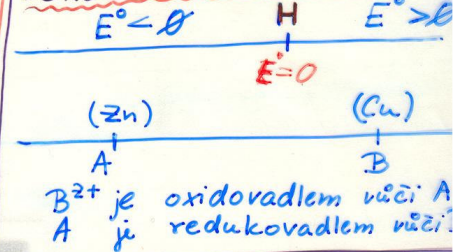 E° < 0 H E° > 0
E° = 0
(Zn) (Cu)
A B
B²⁺ je oxidovadlem vůči A
A je redukovadlem vůči